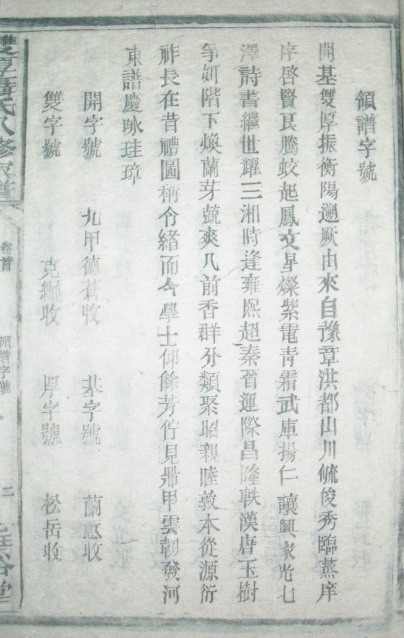 領譜字號
開基雙厚振衡陽遡厥由來自豫章洪都山川毓俊秀臨蒸庠
序啓賢良騰蛟起鳳文星燦紫電青霜武庫揚仁讓興家光七
澤詩書繼世耀三湘時逢雍熙超秦晉運際昌隆軼漢唐玉樹
爭妍階下煥蘭芽競爽几前香群分類聚昭親睦敦本從源衍
祚長在昔禮圖稱令緒而今學士仰餘芳佇見鼎甲雲礽發河
東譜慶咏珪璋
開字號 九甲德蒼收 基字號 蘭蕙收
雙字號 克繩收 厚字號 松岳收
雙厚氏八修族譜 卷首 領譜字號 二 裕堂